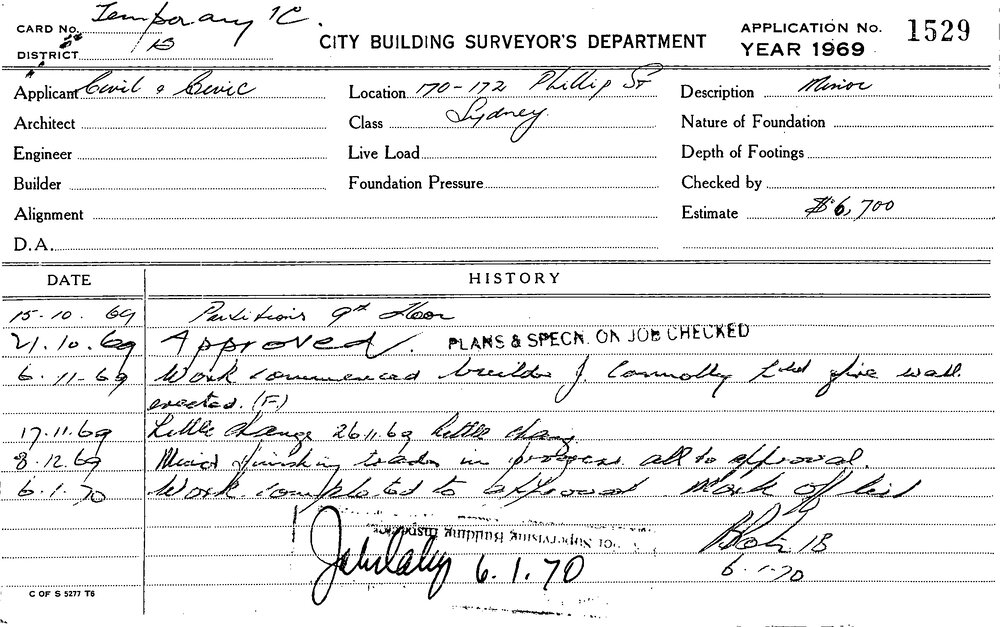 CARD No. Temporary 1C.
DISTRICT 1B
CITY BUILDING SURVEYOR'S DEPARTMENT
APPLICATION No. 1529
YEAR 1969
Applicant Civil & Civic
Location 170-172 Phillip St
Description Minor
Architect
Class Sydney.
Nature of Foundation
Engineer
Live Load
Depth of Footings
Builder
Foundation Pressure
Checked by
Alignment
Estimate $6,700
D.A.
DATE HISTORY
15.10.69 Partitions 9th Floor
21.10.69 Approved. PLANS & SPECN. ON JOB CHECKED
6.11-69 Work commenced builder J. Connolly Ltd fire wall
erected. (F)
17.11.69 Little change 26.11.69 little change
8.12.69 Minor finishing trades in progress all to approval.
6.1.70 Work completed to approval Mark off list
for Supervising Building Inspector
6.1.70
1B
6.1.70
C OF S 5277 T6